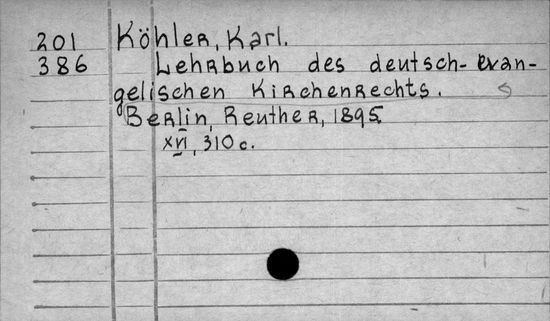 201 Köhler, Karl.
386 Lehrbuch des deutsch-evan-
gelischen Kirchenrechts.
Berlin, Reuther, 1895.
XVI, 310 c.